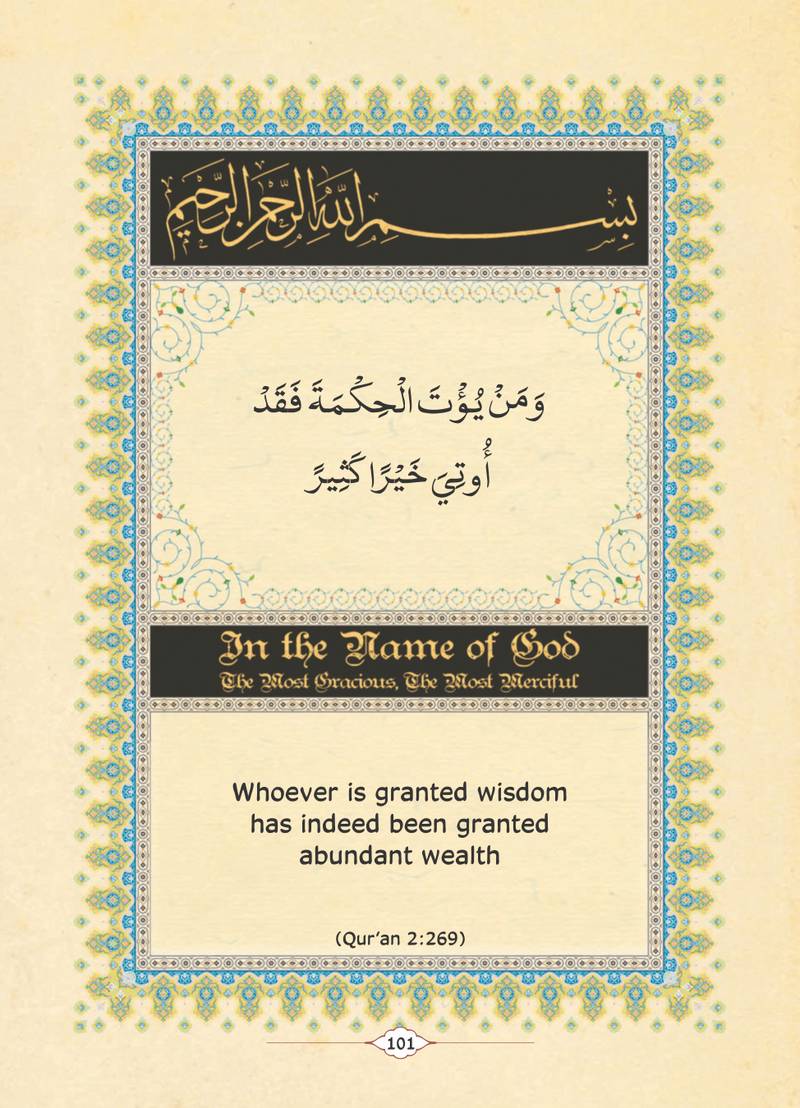 بِسْمِ اللَّهِ الرَّحْمَٰنِ الرَّحِيمِ
وَمَنْ يُؤْتَ الْحِكْمَةَ فَقَدْ
أُوتِيَ خَيْرًا كَثِيرً
In the Name of God
The Most Gracious, The Most Merciful
Whoever is granted wisdom
has indeed been granted
abundant wealth
(Qur’an 2:269)
101